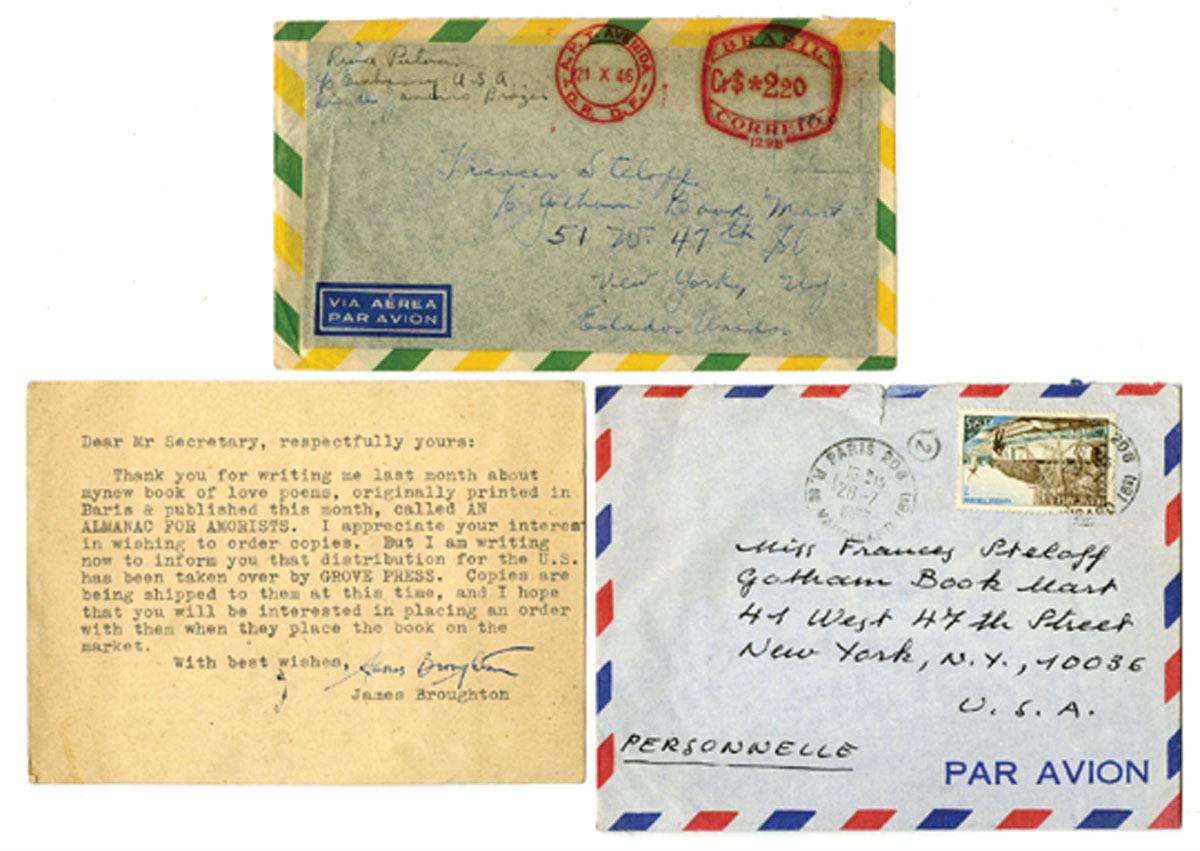 c/o Embassy U.S.A
Rio de Janeiro Brazil
A.P.T. AVENIDA
21 X 46
D.R. D.F.
BRASIL
Cr$ *220
CORREIO
129B
Frances Steloff
c/o Gotham Book Mart
51 W. 47th St.
New York, NY.
Estados Unidos
VIA AÉREA
PAR AVION
Dear Mr Secretary, respectfully yours:
Thank you for writing me last month about
mynew book of love poems, originally printed in
Baris & published this month, called AN
ALMANAC FOR AMORISTS. I appreciate your interes
in wishing to order copies. But I am writing
now to inform you that distribution for the U.S.
has been taken over by GROVE PRESS. Copies are
being shipped to them at this time, and I hope
that you will be interested in placing an order
with them when they place the book on the
market.
With best wishes, James Broughton
James Broughton
PARIS 208
28-7
2
Miss Frances Steloff
Gotham Book Mart
41 West 47th Street
New York, N.Y., 10036
U.S.A.
PERSONNELLE
PAR AVION